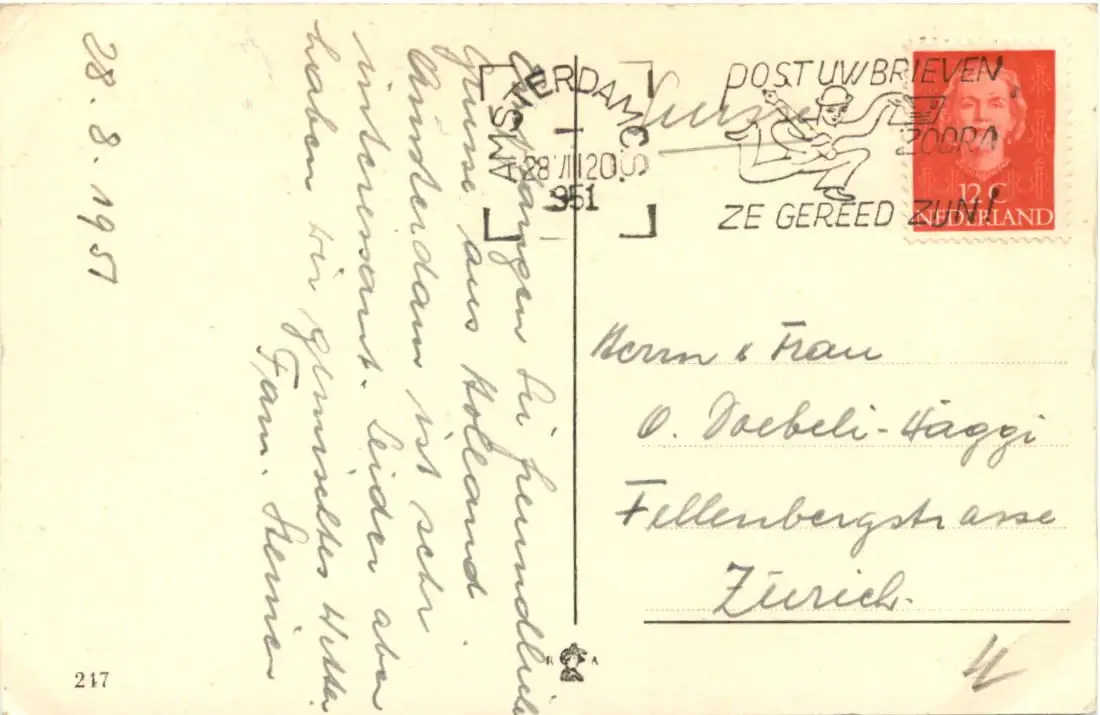 28.8.1951
Empfangen Sie freundliche
Grüsse aus Holland.
Amsterdam ist sehr
interessant. Leider aber
haben wir gemischtes Wetter.
Fam.
AMSTERDAM C.S.
28 VIII 20
1951
POST UW BRIEVEN
ZODRA
ZE GEREED ZIJN!
12 C
NEDERLAND
Herrn & Frau
O. Doebeli-Häggi
Fellenbergstrasse
Zürich.
R A
247